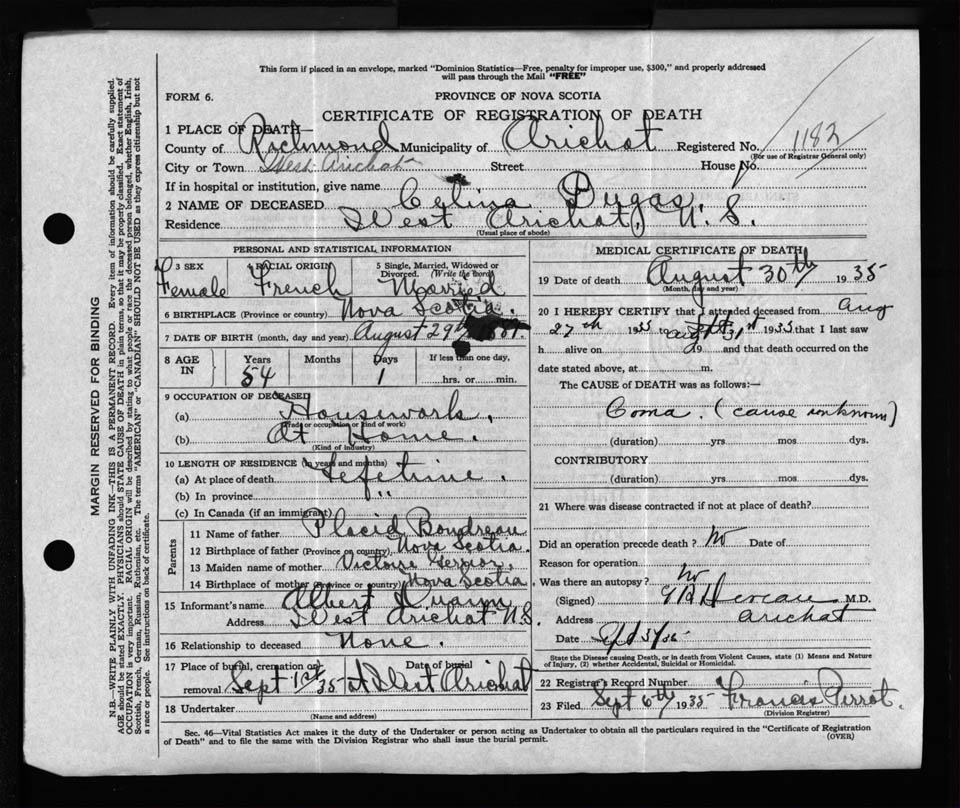 This form if placed in an envelope, marked "Dominion Statistics—Free, penalty for improper use, $300," and properly addressed
will pass through the Mail "FREE"
FORM 6.
PROVINCE OF NOVA SCOTIA
CERTIFICATE OF REGISTRATION OF DEATH
1 PLACE OF DEATH—
County of Richmond Municipality of Arichat Registered No. 1183
(For use of Registrar General only)
City or Town West Arichat Street House No.
If in hospital or institution, give name
2 NAME OF DECEASED Celina Dugas.
Residence West Arichat, N. S.
(Usual place of abode)
PERSONAL AND STATISTICAL INFORMATION
3 SEX 4 RACIAL ORIGIN 5 Single, Married, Widowed or
Divorced. (Write the word)
Female French Married
6 BIRTHPLACE (Province or country) Nova Scotia.
7 DATE OF BIRTH (month, day and year) August 29th
8 AGE IN Years Months Days If less than one day,
54 1 hrs. or min.
9 OCCUPATION OF DECEASED
(a) Housework.
(Trade or occupation or kind of work)
(b) At Home.
(Kind of industry)
10 LENGTH OF RESIDENCE (in years and months)
(a) At place of death Lifetime.
(b) In province "
(c) In Canada (if an immigrant)
Parents
11 Name of father Placid Boudreau
12 Birthplace of father (Province or country) Nova Scotia.
13 Maiden name of mother Victoire
14 Birthplace of mother (Province or country) Nova Scotia
15 Informant's name Albert
Address West Arichat N.S.
16 Relationship to deceased None.
17 Place of burial, cremation or Date of burial
removal Sept 1st 35 at West Arichat
18 Undertaker
(Name and address)
MEDICAL CERTIFICATE OF DEATH
19 Date of death August 30th 1935
(Month, day and year)
20 I HEREBY CERTIFY that I attended deceased from Aug
27th 1935 to 31st 1935 that I last saw
h alive on 19 and that death occurred on the
date stated above, at m.
The CAUSE of DEATH was as follows:—
Coma. (cause unknown)
(duration) yrs mos dys.
CONTRIBUTORY
(duration) yrs. mos. dys.
21 Where was disease contracted if not at place of death?
Did an operation precede death? No Date of
Reason for operation
Was there an autopsy? No
(Signed) M.D.
Address Arichat
Date
State the Disease causing Death, or in death from Violent Causes, state (1) Means and Nature
of Injury, (2) whether Accidental, Suicidal or Homicidal.
22 Registrar's Record Number
23 Filed Sept 6th 1935 Francis
(Division Registrar)
Sec. 46—Vital Statistics Act makes it the duty of the Undertaker or person acting as Undertaker to obtain all the particulars required in the "Certificate of Registration
of Death" and to file the same with the Division Registrar who shall issue the burial permit.
(OVER)
MARGIN RESERVED FOR BINDING
N.B.—WRITE PLAINLY WITH UNFADING INK—THIS IS A PERMANENT RECORD. Every item of information should be carefully supplied.
AGE should be stated EXACTLY. PHYSICIANS should STATE CAUSE OF DEATH in plain terms, so that it may be properly classified. Exact statement of
OCCUPATION is very important. RACIAL ORIGIN will be described by stating to what people or race the deceased person belonged, whether English, Irish,
Scottish, French, German, Russian, Ruthenian, etc. The terms "AMERICAN" or "CANADIAN" SHOULD NOT BE USED as they express citizenship but not
a race or people. See instructions on back of certificate.